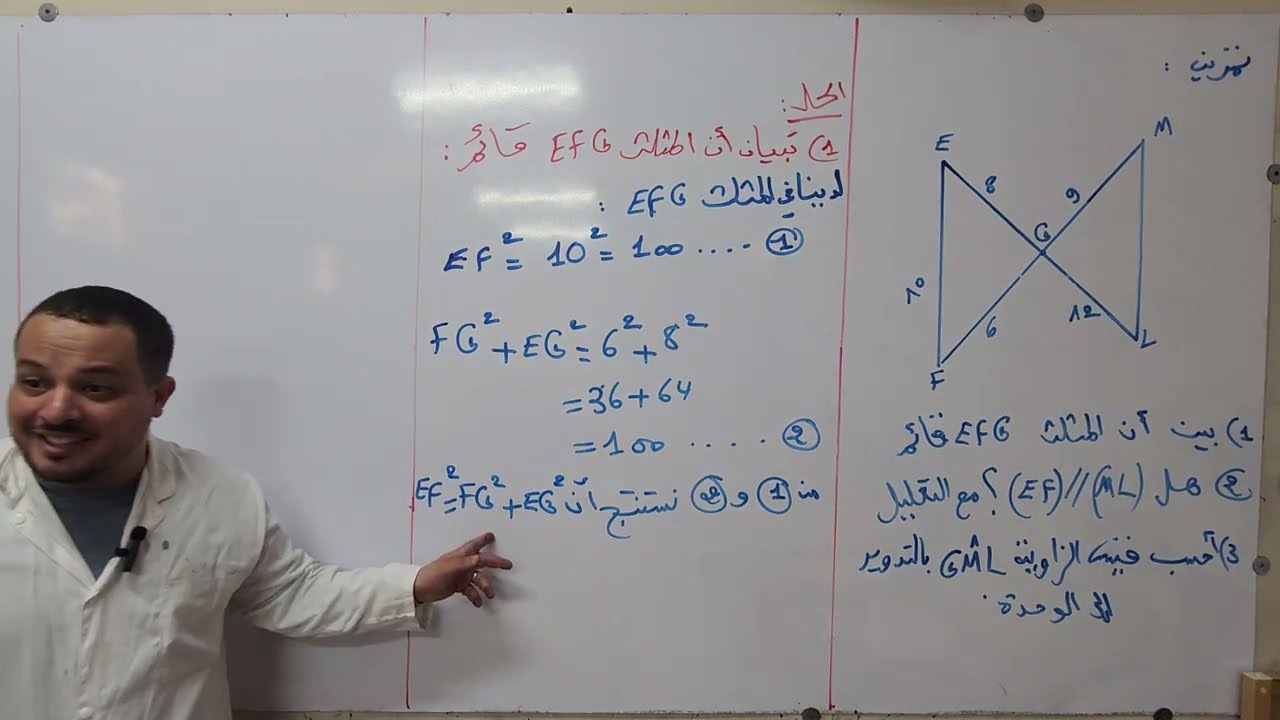 تمرين :
E
M
8
9
G
10
6
12
F
L
1) بين أن المثلث EFG قائم
2) هل (EF) // (ML) ؟ مع التعليل
3) أحسب قيس الزاوية GM̂L بالتدوير
إلى الوحدة .
الحل :
1) تبيان أن المثلث EFG قائم :
لدينا في المثلث EFG :
EF² = 10² = 100 .... ①
FG² + EG² = 6² + 8²
= 36 + 64
= 100 ..... ②
من ① و ② نستنتج أن EF² = FG² + EG²